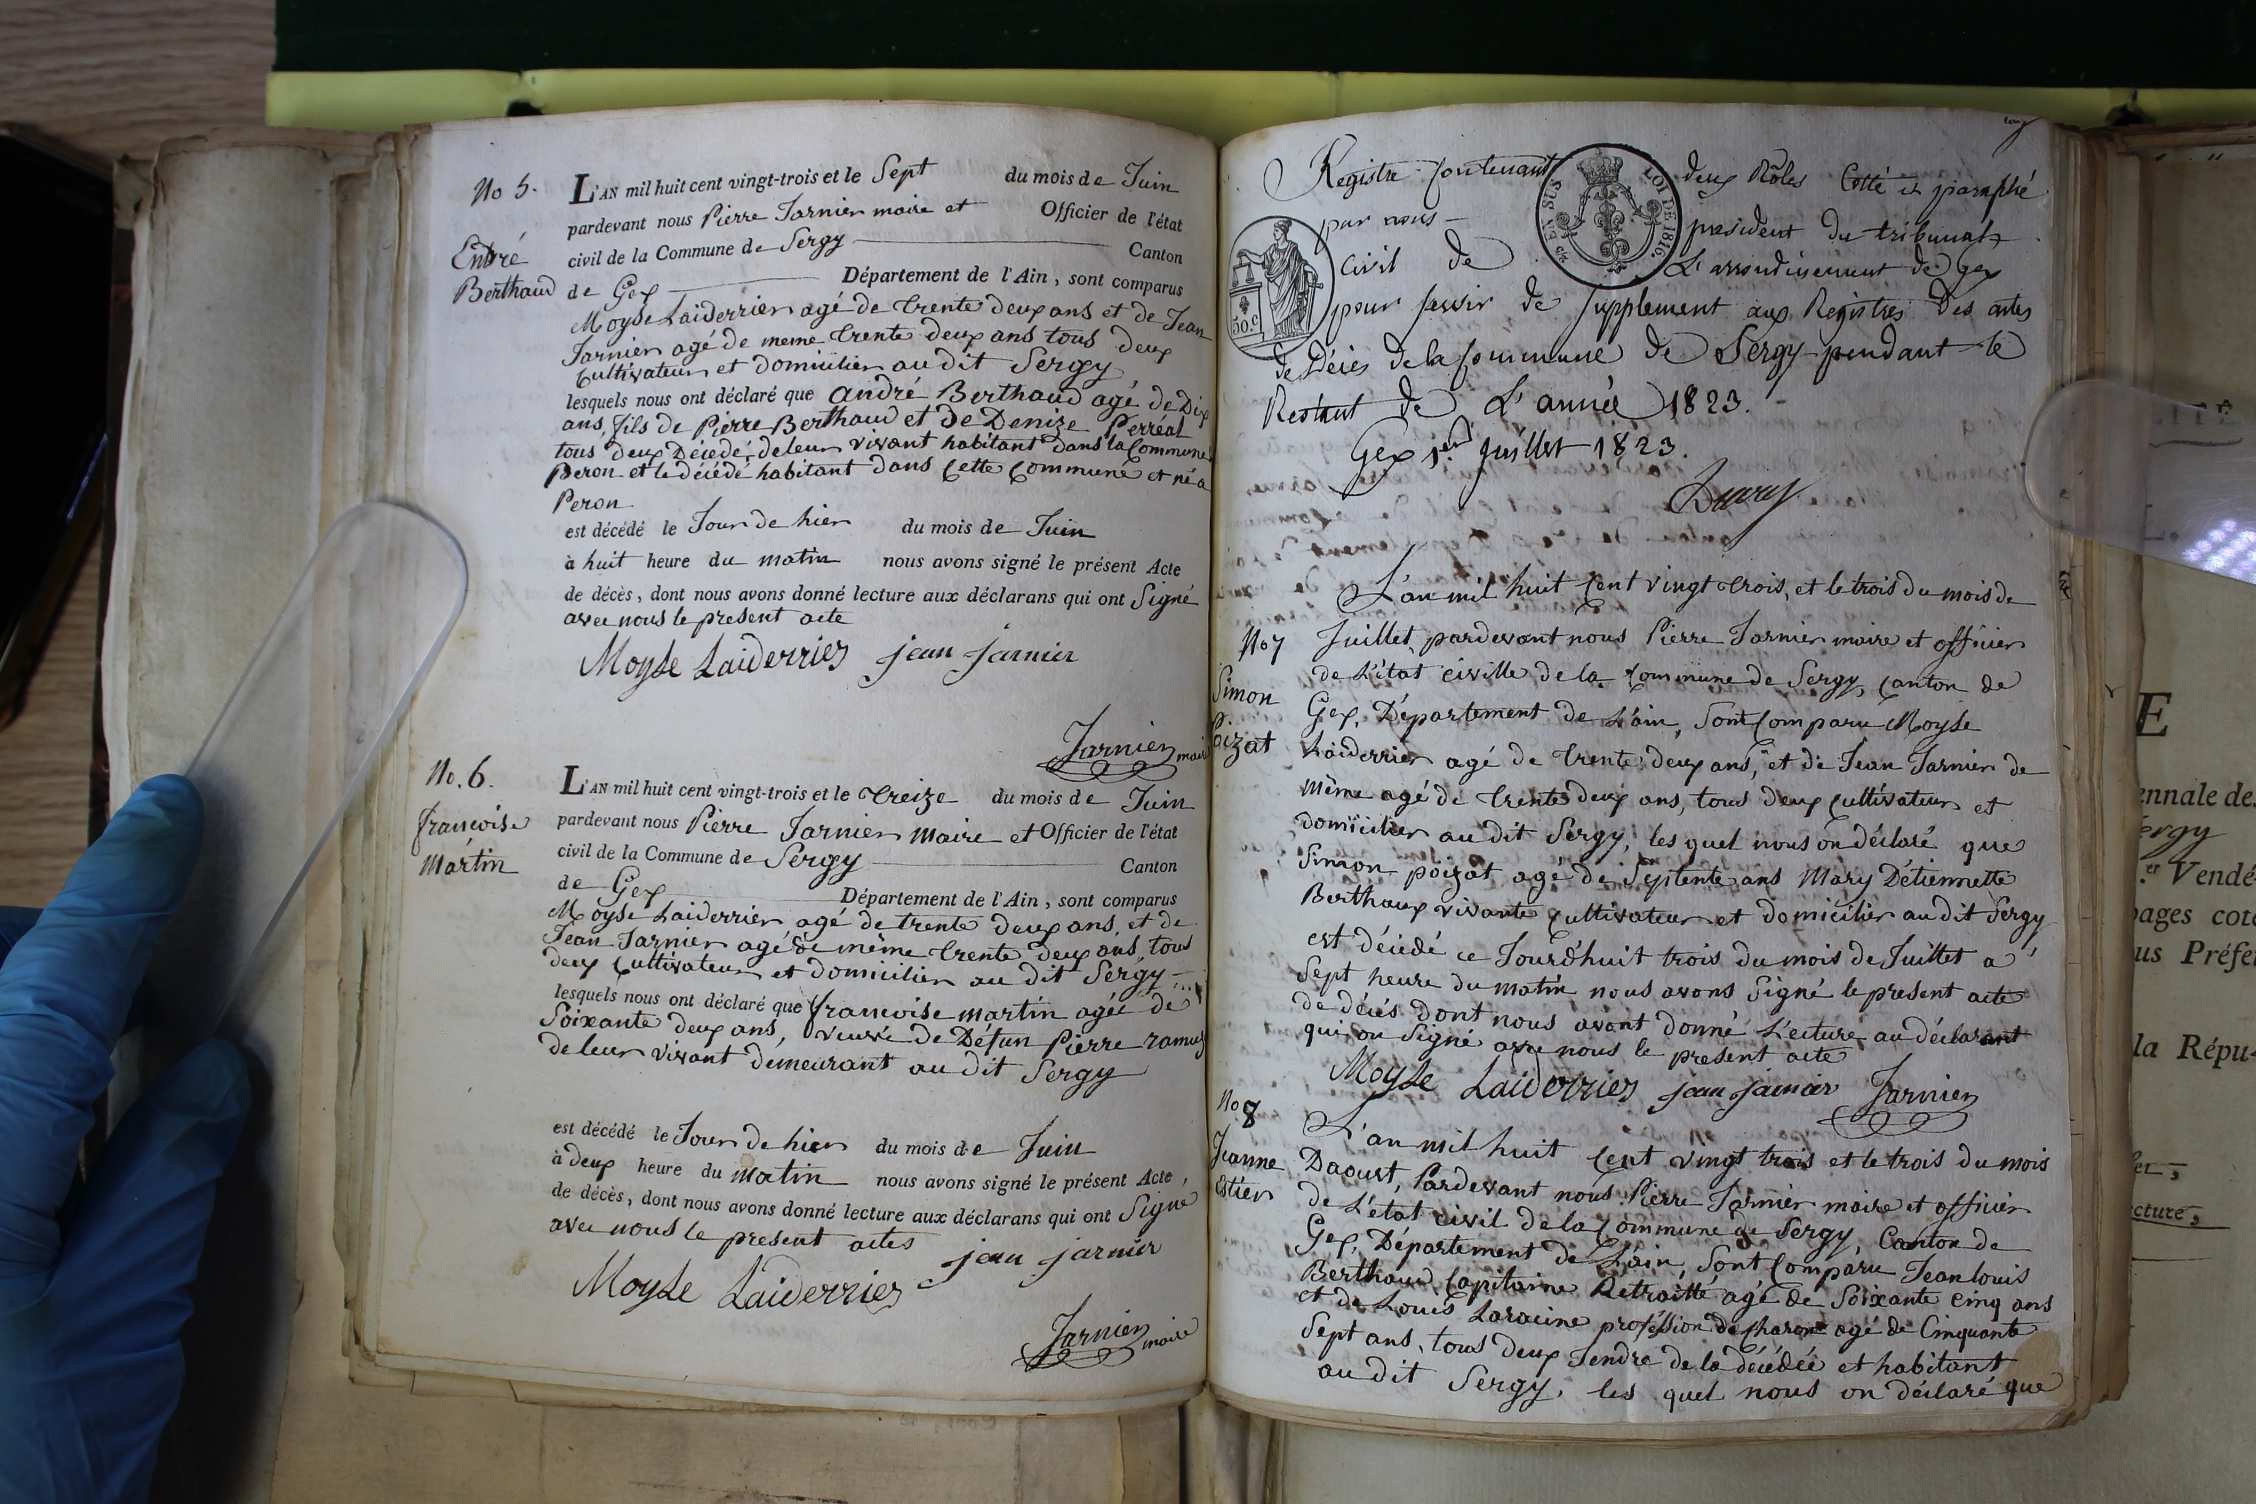 No 5.
Endré
Berthaud
L'AN mil huit cent vingt-trois et le Sept du mois de Juin
pardevant nous Pierre Jarnier maire et Officier de l'état
civil de la Commune de Sergy Canton
de Gex Département de l'Ain, sont comparus
Moyse Laiderrier agé de trente deux ans et de Jean
Jarnier agé de meme trente deux ans tous deux
Cultivateur et domicilier au dit Sergy
lesquels nous ont déclaré que André Berthaud agé de Dix
ans, fils de Pierre Berthaud et de Denize Perréal
tous deux Décédé, de leur vivant habitant dans la Commune
Peron et le décédé habitant dans cette commune et né a
Peron
est décédé le Jour de hier du mois de Juin
à huit heure du matin nous avons signé le présent Acte
de décès, dont nous avons donné lecture aux déclarans qui ont Signé
avec nous le present acte
Moyse Laiderrier jean jarnier
Jarnier maire
No. 6.
francoise
Martin
L'AN mil huit cent vingt-trois et le treize du mois de Juin
pardevant nous Pierre Jarnier maire et Officier de l'état
civil de la Commune de Sergy Canton
de Gex Département de l'Ain, sont comparus
Moyse Laiderrier agé de trente deux ans, et de
Jean Jarnier agé de même trente deux ans, tous
deux Cultivateur et domicilier au dit Sergy
lesquels nous ont déclaré que francoise martin agée de
Soixante deux ans, veuve de Défun Pierre ramuz
de leur vivant demeurant au dit Sergy
est décédé le Jour de hier du mois de Juin
à deux heure du matin nous avons signé le présent Acte
de décès, dont nous avons donné lecture aux déclarans qui ont Signé
avec nous le present actes
Moyse Laiderrier jean jarnier
Jarnier maire
Registre contenant deux Rôles Cotté et paraphé
par nous président du tribunal
civil de L'arrondissement de Gex
pour servir de supplement aux Registres des actes
de Décès de la Commune de Sergy pendant le
Restant de L'année 1823.
Gex 1er juillet 1823.
EN SUS
LOI DE 1816.
50.c
No 7
Simon
Poizat
L'an mil huit cent vingt trois, et le trois du mois de
Juillet, pardevant nous Pierre Jarnier maire et officier
de L'état civille de la commune de Sergy, canton de
Gex, Département de L'ain, Sont Comparu Moyse
Laiderrier agé de trente deux ans, et de Jean Jarnier de
même agé de trente deux ans, tous deux cultivateur et
domicilier au dit Sergy, les quel nous on déclaré que
Simon poizat agé de Septente ans Mary D'étiennette
Berthaux vivante cultivateur et domicilier au dit Sergy
est décédé ce Jourd'huit trois du mois de Juillet a
Sept heure du matin nous avons Signé le present acte
de décés dont nous avont donné L'ecture au déclarant
qui on Signé avec nous le present acte
Moyse Laiderrier jean jarnier Jarnier
No 8
Jeanne
Estier
L'an mil huit cent vingt trois et le trois du mois
Daoust, Pardevant nous Pierre Jarnier maire et officier
de L'état civil de la Commune de Sergy, Canton de
Gex, Département de L'ain, Sont Comparu Jean louis
Berthaud, Capitaine Retraitté agé de Soixante cinq ans
et de Louis Laracine profession de charon agé de Cinquante
Sept ans, tous deux Jendre de la décédée et habitant
au dit Sergy, les quel nous on déclaré que
E
ennale de
ergy
er Vendé
pages coté
us Préfe
la Répu-
cture,